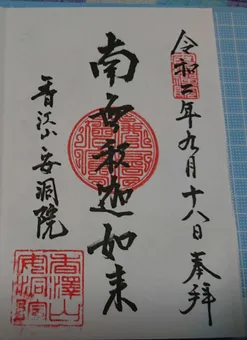 令和二年九月十八日 奉拝
南無釈迦如来
香沢山 安洞院
香澤山
安洞院